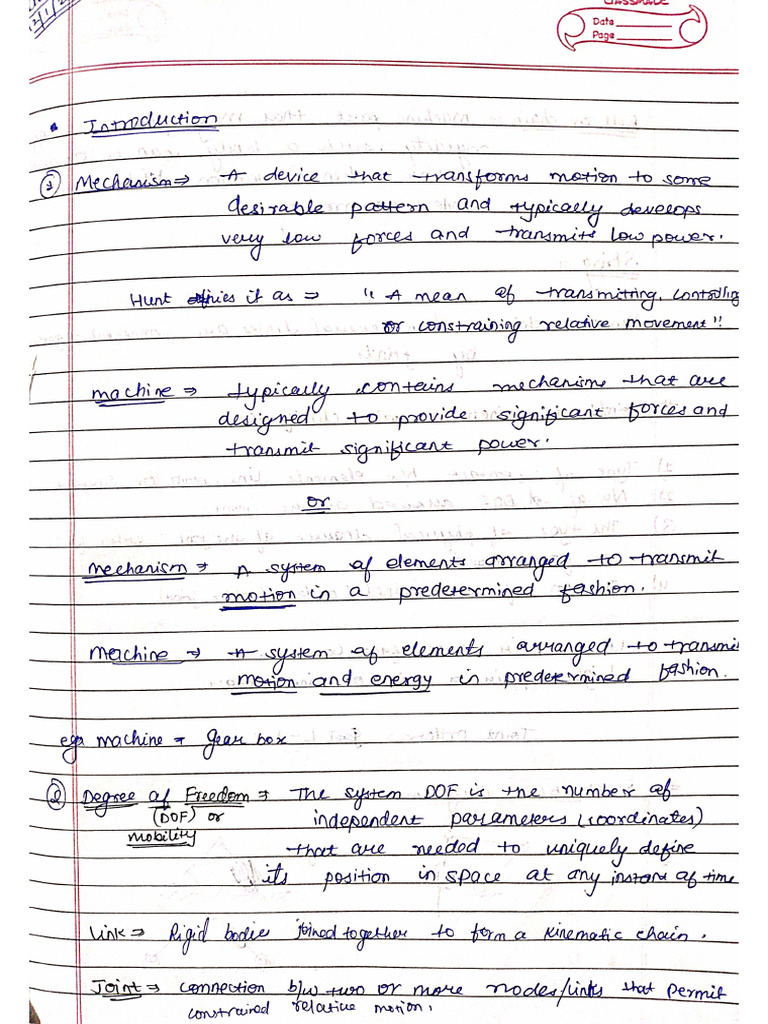 classmate
Date
Page
• Introduction
① Mechanism ⇒ A device that transforms motion to some
desirable pattern and typically develops
very low forces and transmits low power.
Hunt defines it as ⇒ "A mean of transmitting, controlling
or constraining relative movement".
machine ⇒ typically contains mechanisms that are
designed to provide significant forces and
transmit significant power.
or
mechanism ⇒ A system of elements arranged to transmit
motion in a predetermined fashion.
Machine → A system of elements arranged to transmit
motion and energy in predetermined fashion.
eg. machine ⇒ Gear box
② Degree of Freedom ⇒ The system DOF is the number of
(DOF) or independent parameters (coordinates)
mobility that are needed to uniquely define
its position in space at any instant of time
Link ⇒ Rigid bodies joined together to form a kinematic chain.
Joint ⇒ connection b/w two or more nodes/links that permit
constrained relative motion.